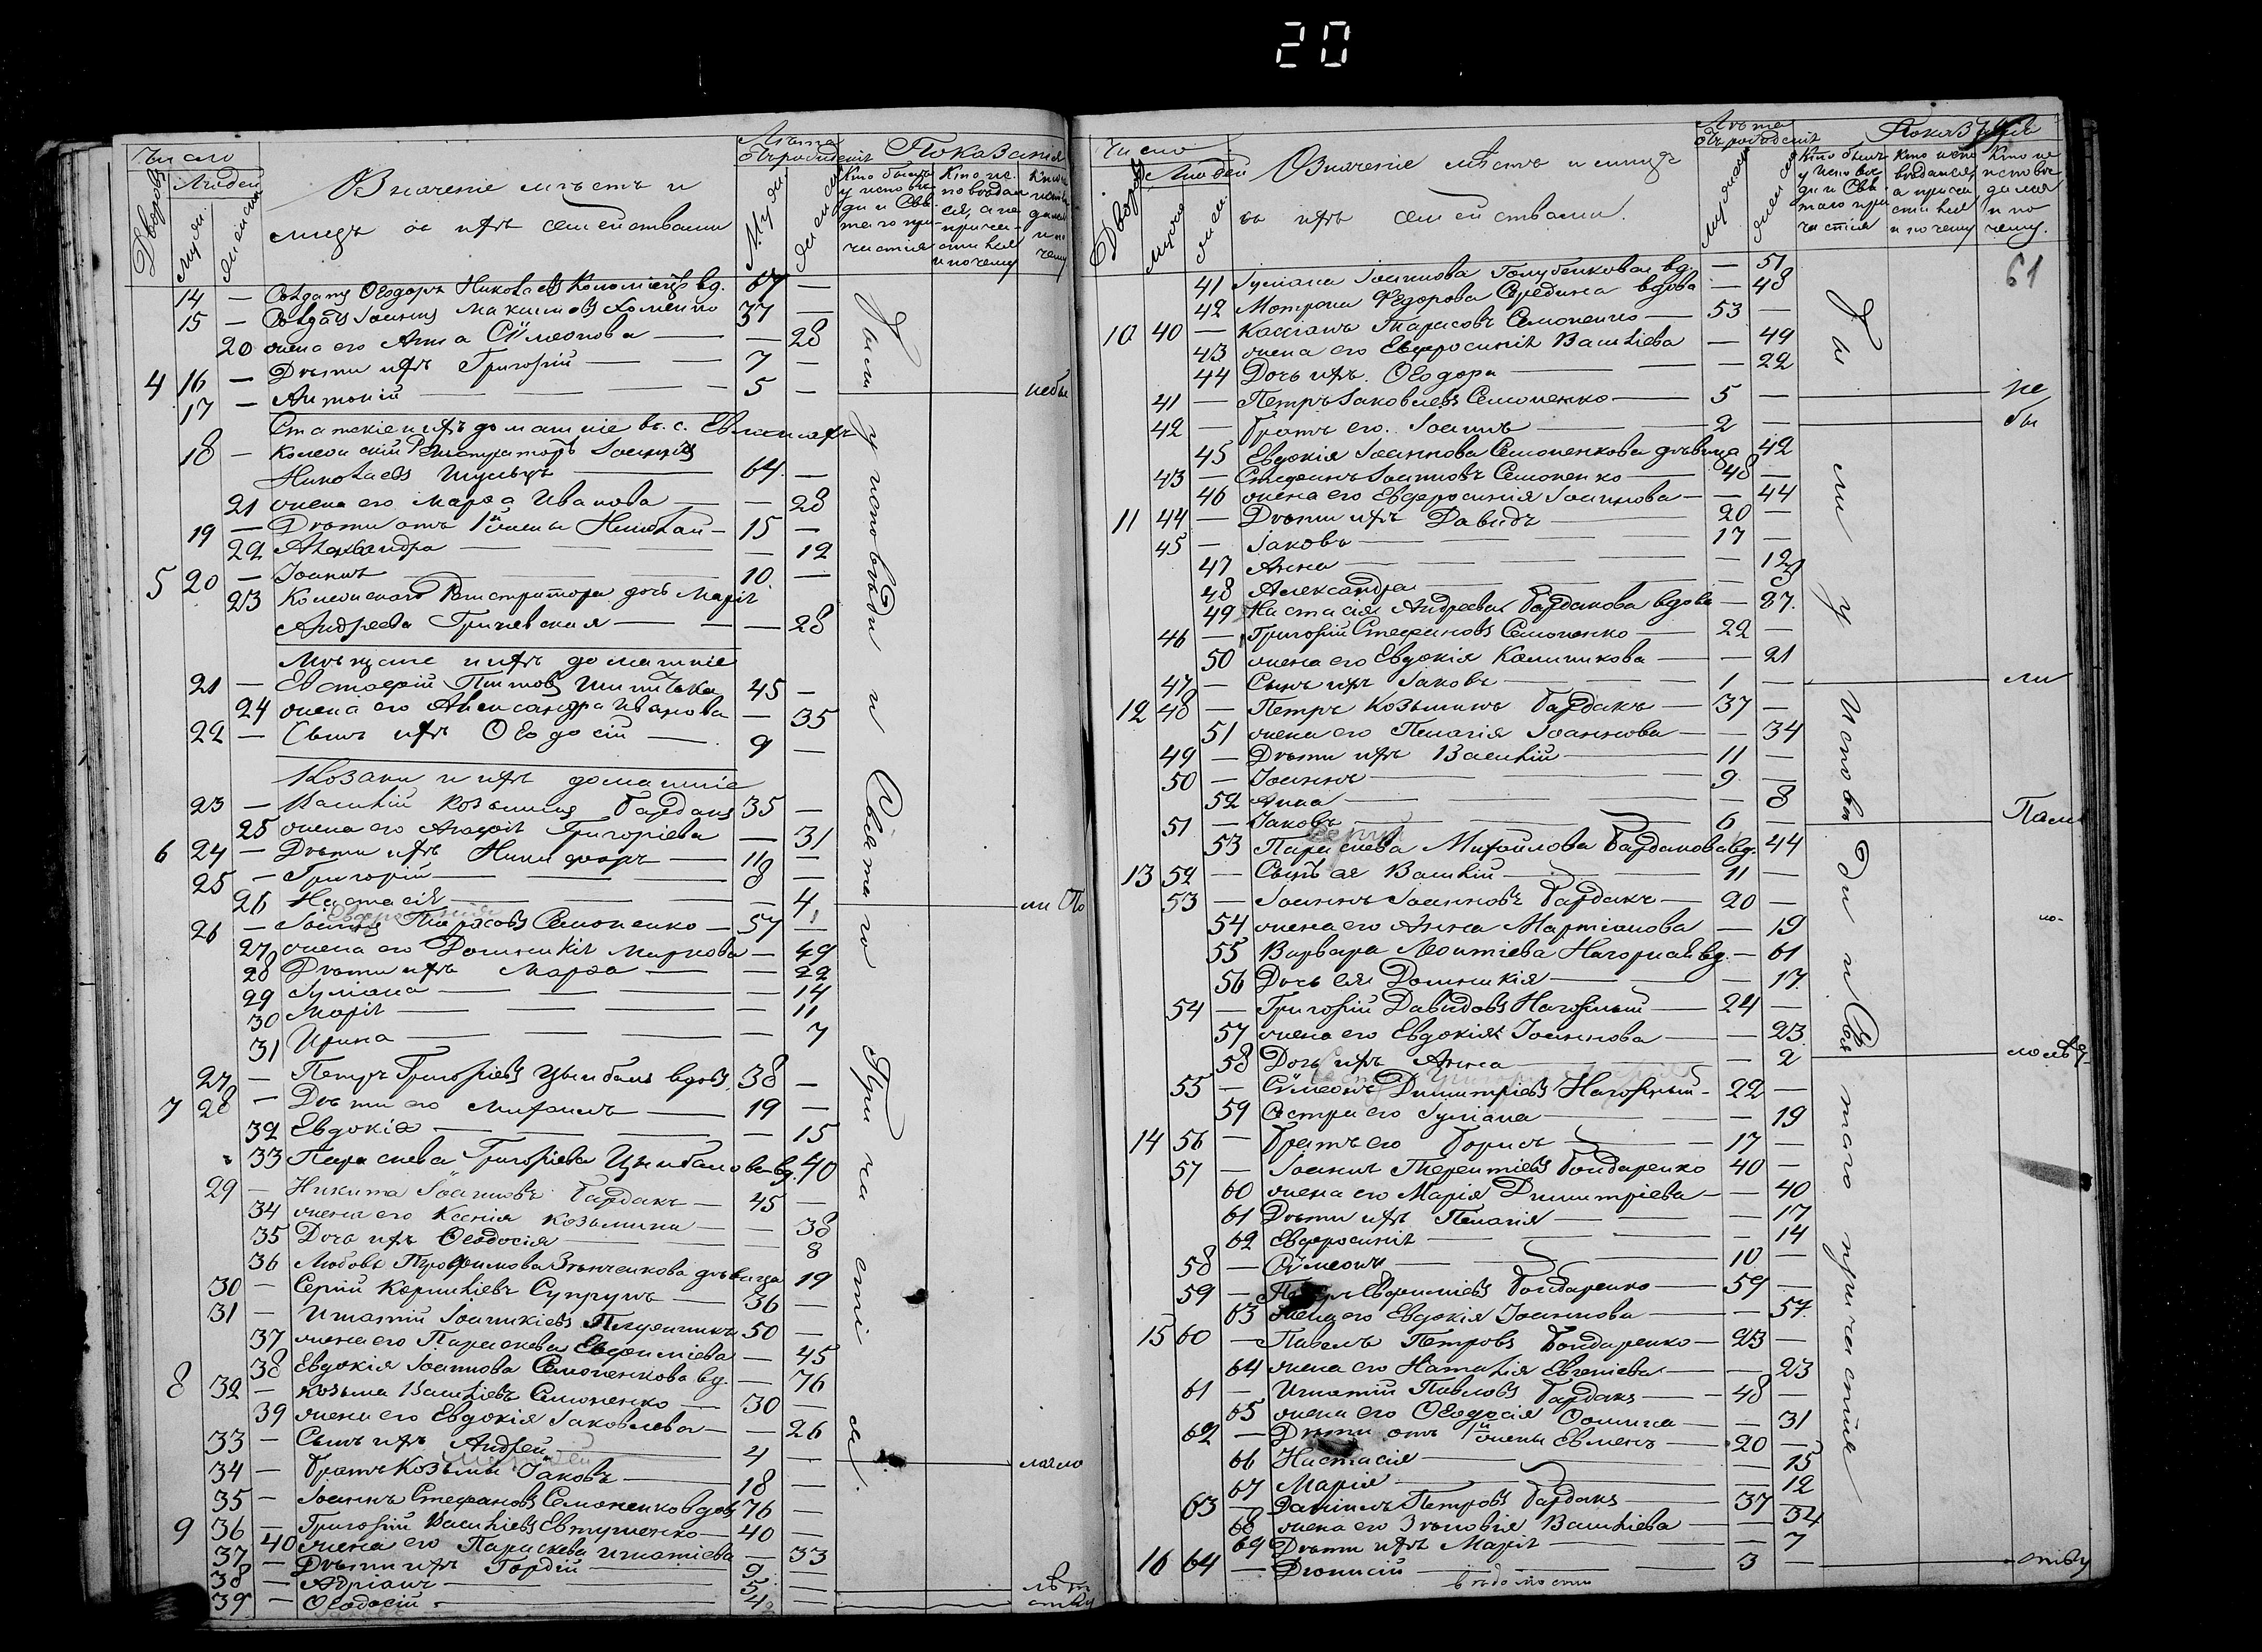 20
Число
Людей
Дворовъ
Муж.
Женск.
Значеніе мѣстъ и
лицъ съ ихъ семействами
Лѣта
отъ рожденія
Муж.
Женск.
Показанія
Кто былъ
у исповѣ-
ди и Свя-
таго при-
частія
Кто ис-
повѣдал-
ся, а не
прича-
стился
и почему
14 — Солдатъ Ѳеодоръ Николаевъ Коломіецъ вд. 67 —
15 — Солдатъ Іоаннъ Максимовъ Хоменко 37 —
20 жена его Анна Сѵмеонова — 28
4 16 — Дѣти ихъ Григорій 7 —
17 — Антоній 5 — небы
Статскіе и ихъ домашніе
18 — Колежскій Регистраторъ Іоаннъ
Николаевъ Шульцъ 64 —
21 жена его Марѳа Иванова — 28
19 — Дѣти отъ 1й жены Николай 15 —
22 Александра — 12
5 20 — Іоаннъ 10 —
23 Колежскаго Регистратора дочь Марія
Андреева Гричевская — 28
Мѣщане и ихъ домашніе
21 — Евстафій 45 —
24 жена его Александра Иванова — 35
22 — Сынъ ихъ Ѳеодосій 9 —
Козаки и ихъ домашніе
23 — Василій Козьминъ Бардакъ 35 —
25 жена его Агафія Григоріева — 31
6 24 — Дѣти ихъ Никифоръ 11 —
25 — Григорій 8 —
26 Настасія — 4 ли По
26 — Іоаннъ Тарасовъ Семоненко 57 —
27 жена его Домникія Маркова — 49
28 Дѣти ихъ Марѳа — 22
29 Іуліана — 14
30 Марія — 11
31 Ирина — 7
27 — Петръ Григоріевъ Цымбалъ вдовъ 38 —
7 28 — Дѣти его Михаилъ 19 —
32 Евдокія — 15
33 Параскева Григоріева Цымбалова вд. 40
29 — Никита Іоанновъ Бардакъ 45 —
34 жена его Ксенія Козьмина — 38
35 Дочь ихъ Ѳеодосія — 8
36 Любовь Трофимова Зѣнченкова дѣвица 19
30 — Сергій Корниліевъ Супрунъ 36 —
31 — Игнатій Іоаникіевъ 50 —
37 жена его Параскева Евфиміева — 45
38 Евдокія Іоаннова Семоненкова вд. — 76
8 32 — Козьма Василіевъ Семоненко 30 —
39 жена его Евдокія Іаковлева — 26
33 — Сынъ ихъ Андрей 4 —
34 — Братъ Козьмы Іаковъ 18 —
35 — Іоаннъ Стефановъ Семоненко вдовъ 76 —
9 36 — Григорій Василіевъ Евтушенко 40 —
40 жена его Параскева Игнатіева — 33
37 — Дѣти ихъ Гордій 9 —
38 — Адріанъ 5 —
39 — Ѳеодосій 4 —
Были у исповѣди и Святаго Причастія
Число
Людей
Дворовъ
Женск.
Означеніе мѣстъ и лицъ
съ ихъ семействами.
Лѣта
отъ рожденія
Показаніе
Кто былъ
у испове
ди и Свя
таго при
частія
Кто испо
вѣдался
а прича
стился
и почему
Кто не
исповѣ
дался
и по
чему.
61
41 Іуліана Іоаннова Голубенкова вд. — 51
42 Мотрона Ѳедорова Середина вдова — 48
10 40 — Тарасовъ Семоненко 53 —
43 жена его Евфросинія Василіева — 49
44 Дочь ихъ Ѳеодора — 22
41 — Петръ Іаковлевъ Семоненко 5 — не
42 — Братъ его Іоаннъ 2 — бы
45 Евдокія Іоаннова Семоненкова дѣвица 42
43 — Стефанъ Іоанновъ Семоненко 48 —
46 жена его Евфросинія Іоаннова — 44
11 44 — Дѣти ихъ Давидъ 20 —
45 — Іаковъ 17 —
47 Анна — 12
48 Александра — 8
49 Настасія Андреева Бардакова вдова — 87
46 — Григорій Стефановъ Семоненко 22 —
50 жена его Евдокія Калиникова — 21
47 — Сынъ ихъ Іаковъ 1 — ли
12 48 — Петръ Козьминъ Бардакъ 37 —
51 жена его Пелагія Іоаннова — 34
49 — Дѣти ихъ Василій 11 —
50 — Іоаннъ 9 —
52 Анна — 8
51 — Іаковъ 6 —
53 Параскева Михайлова Бардакова вд. 44
13 52 — Сынъ ея Василій 11 —
53 — Іоаннъ Іоанновъ Бардакъ 20 —
54 жена его Анна Мартіанова — 19
55 Варвара Леонтіева Нагорная вд. — 61
56 Дочь ея Домникія — 17
54 — Григорій Давидовъ Нагорный 24 —
57 жена его Евдокія Іоаннова — 23
58 Дочь ихъ Анна — 2
55 — Сѵмеонъ Димитріевъ Нагорный 22 —
59 Сестра его Іуліана — 19
14 56 — Братъ его Борисъ 17 —
57 — Іоаннъ Терентіевъ Бондаренко 40 —
60 жена его Марія Димитріева — 40
61 Дѣти ихъ Пелагія — 17
62 Евфросинія — 14
58 — Сѵмеонъ 10 —
59 — Евфиміевъ Бондаренко 59 —
63 жена его Евдокія Іоаннова — 57
15 60 — Павелъ Петровъ Бондаренко 23 —
64 жена его Наталія Евгеніева — 23
61 — Игнатій Павловъ Бардакъ 48 —
65 жена его Ѳеодосія Ѳомина — 31
62 — Дѣти отъ 1й жены Евменъ 20 —
66 Настасія — 15
67 Марія — 12
63 — Даніилъ Петровъ Бардакъ 37 —
68 жена его Зѣновія Василіева — 34
69 Дѣти ихъ Марія — 7
16 64 — Діонисій 3 —
Были у Исповѣди и Святаго причастія
вѣдомости